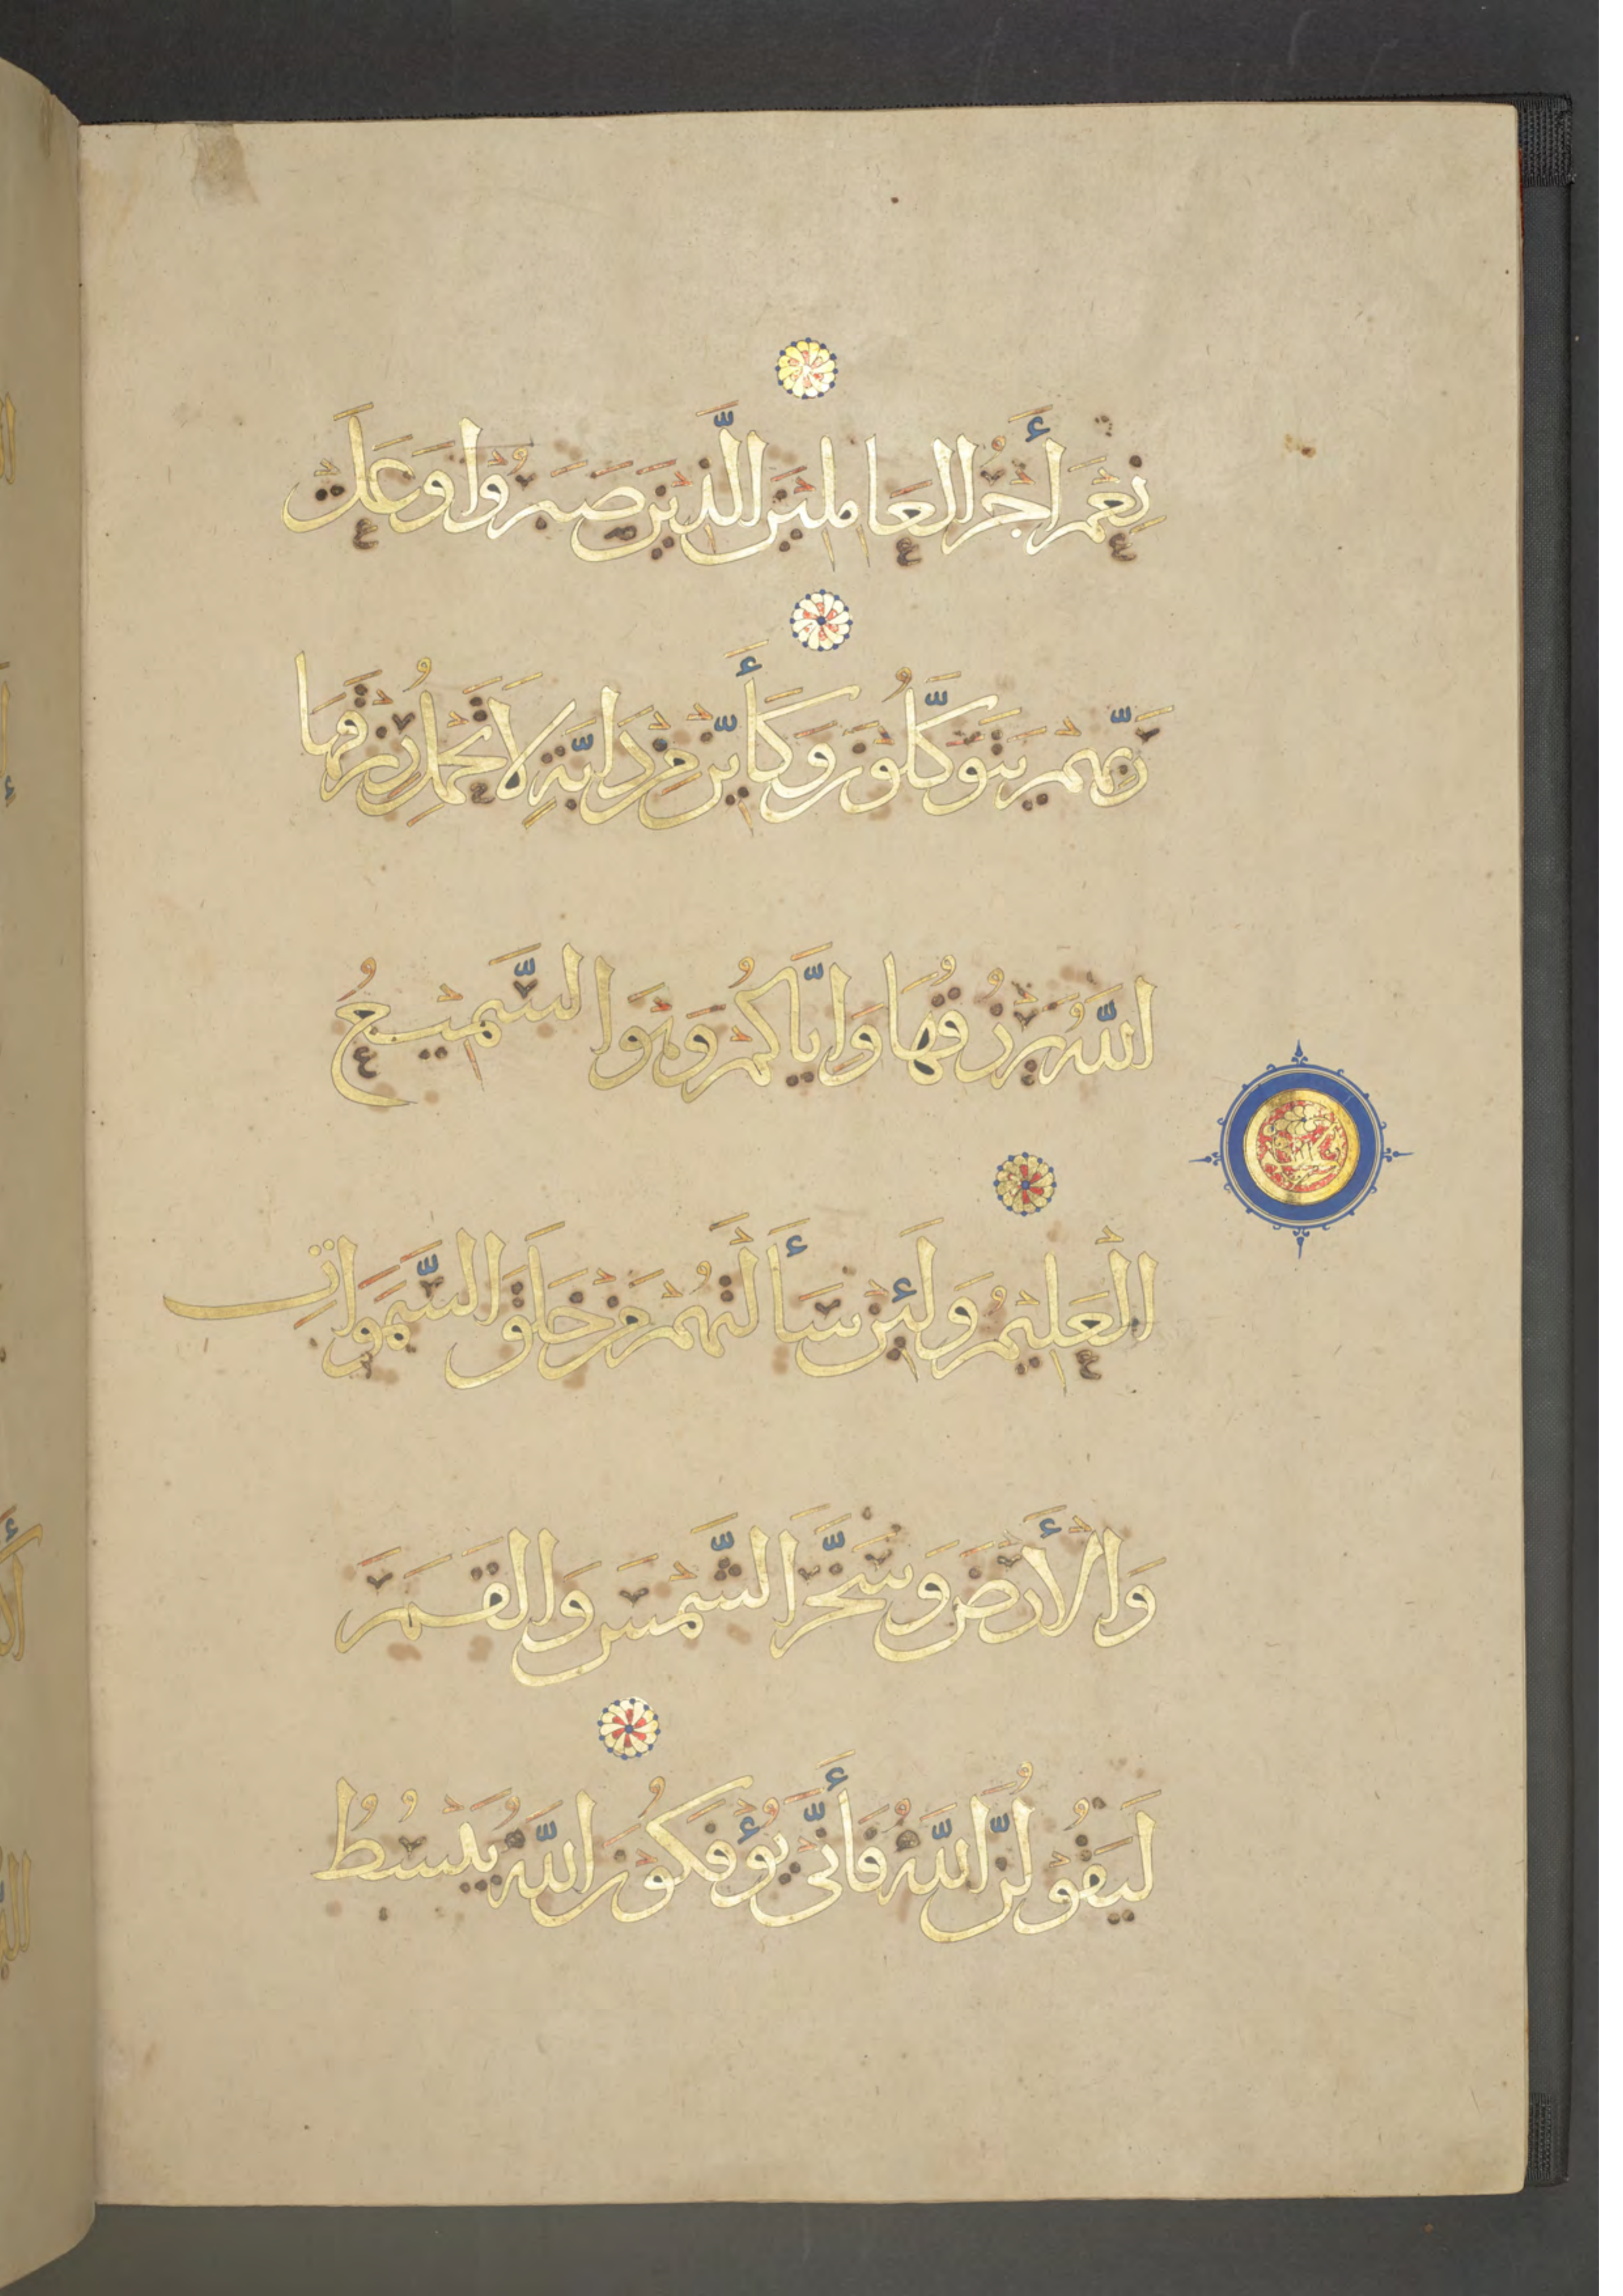 نِعْمَ أَجْرُ العَامِلِيْنَ الَّذِيْنَ صَبَرُوْا وَعَلَى
رَبِّهِمْ يَتَوَكَّلُوْنَ وَكَأَيِّنْ مِنْ دَابَّةٍ لَا تَحْمِلُ رِزْقَهَا
اللَّهُ يَرْزُقُهَا وَاِيَّاكُمْ وَهُوَ السَّمِيْعُ
الْعَلِيْمُ وَلَئِنْ سَأَلْتَهُمْ مَنْ خَلَقَ السَّمَوَاتِ
وَالْأَرْضَ وَسَخَّرَ الشَّمْسَ وَالقَمَرَ
لَيَقُوْلُنَّ اللَّهُ فَأَنَّى يُؤْفَكُوْنَ اللَّهُ يَبْسُطُ